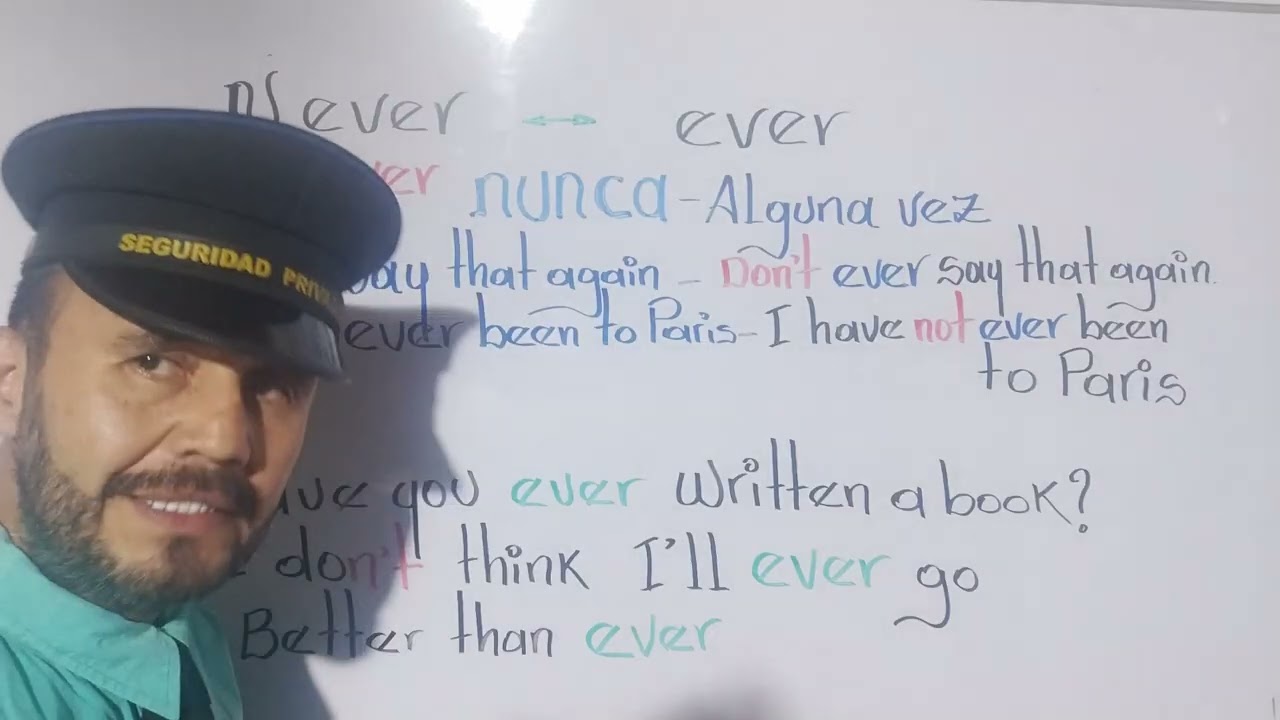 Never ↔ ever
nunca - Alguna vez
that again - Don't ever say that again.
ever been to Paris - I have not ever been
to Paris
you ever written a book?
don't think I'll ever go
Better than ever
SEGURIDAD